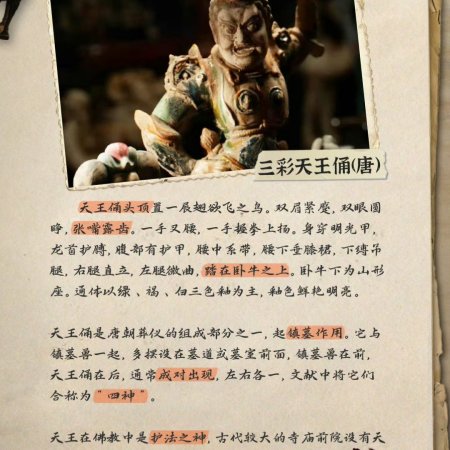 三彩天王俑(唐)
天王俑头顶置一展翅欲飞之鸟。双眉紧蹙，双眼圆
睁，张嘴露齿。一手叉腰，一手握拳上扬。身穿明光甲，
龙首护膊，腹部有护甲，腰中系带，腰下垂膝裙，下缚吊
腿，右腿直立，左腿微曲，踏在卧牛之上。卧牛下为山形
座。通体以绿、褐、白三色釉为主，釉色鲜艳明亮。
天王俑是唐朝葬仪的组成部分之一，起镇墓作用。它与
镇墓兽一起，多摆设在墓道或墓室前面，镇墓兽在前，
天王俑在后，通常成对出现，左右各一，文献中将它们
合称为“四神”。
天王在佛教中是护法之神，古代较大的寺庙前院设有天